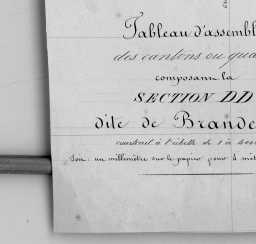 Tableau d'assembl
des cantons ou qua
composant la
SECTION DD
dite de Brande
construit à l'échelle de 1 à
Soit: un millimètre sur le papier pour